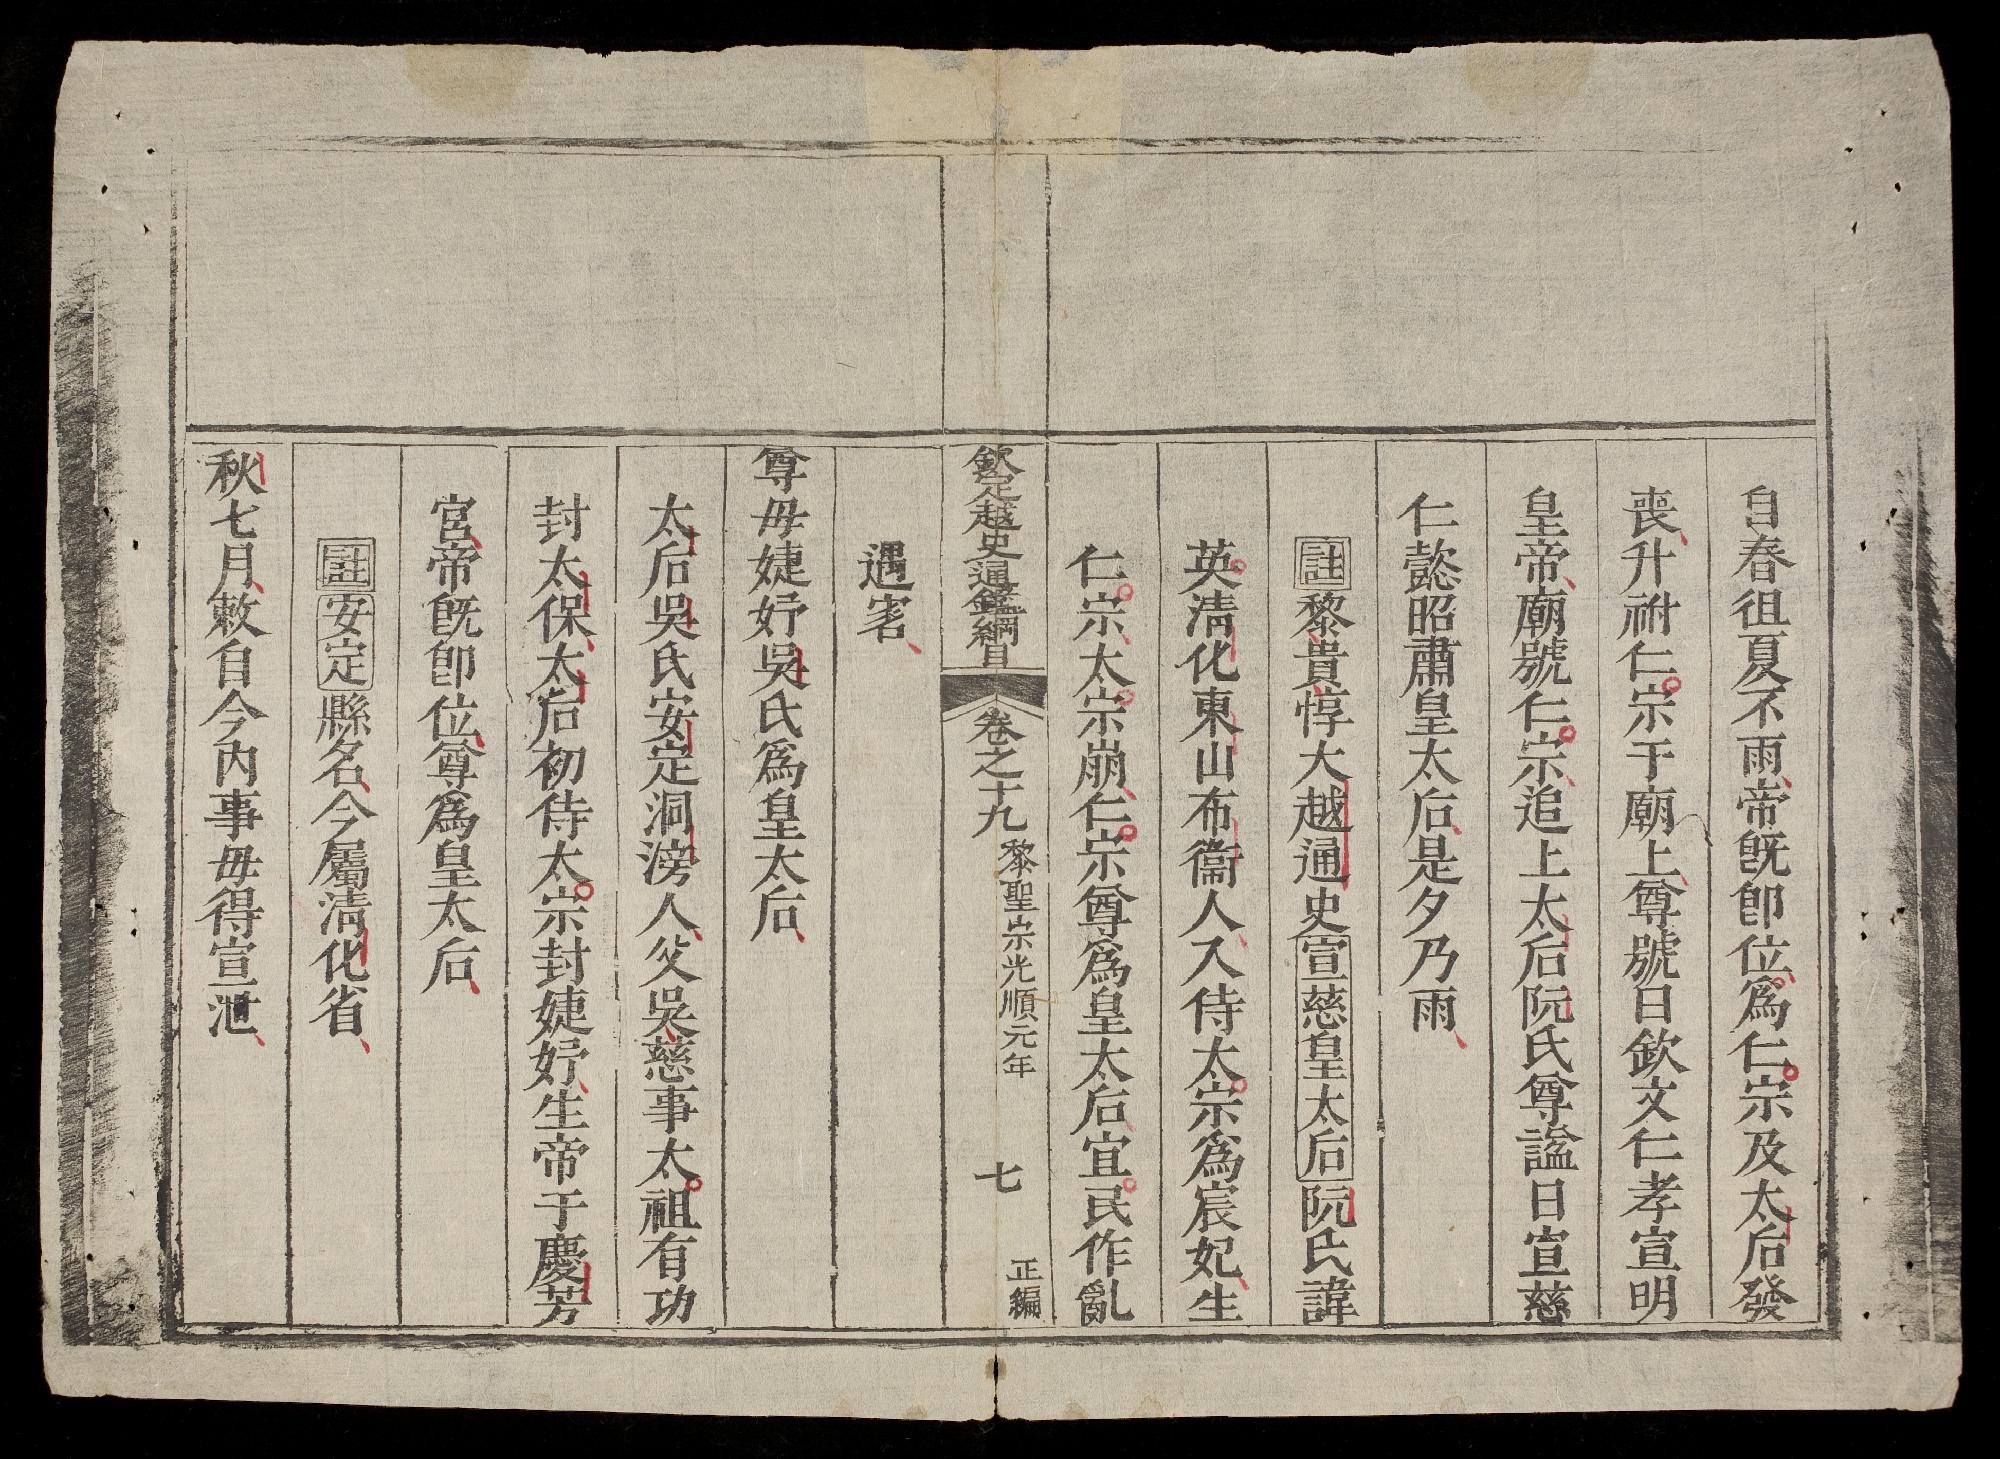 自春徂夏不雨帝旣卽位爲仁宗及太后發
喪升祔仁宗于廟上尊號曰欽文仁孝宣明
皇帝廟號仁宗追上太后阮氏尊謚曰宣慈
仁懿昭肅皇太后是夕乃雨
註黎貴惇大越通史宣慈皇太后阮氏諱
英淸化東山布衞人入侍太宗爲宸妃生
仁宗太宗崩仁宗尊爲皇太后宜民作亂
遇害
欽定越史通鑑綱目
卷之十九
黎聖宗光順元年
七
正編
尊母婕妤吳氏爲皇太后
太后吳氏安定洞滂人父吳慈事太祖有功
封太保太后初侍太宗封婕妤生帝于慶芳
宮帝旣卽位尊爲皇太后
註安定縣名今屬淸化省
秋七月敕自今內事毋得宣泄